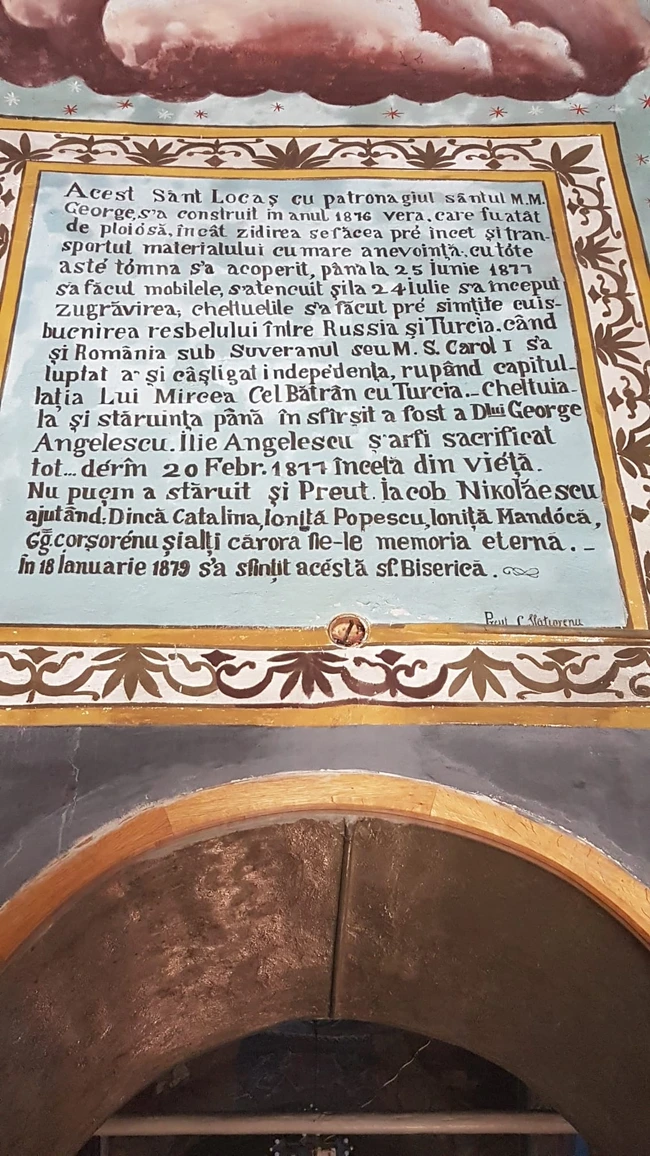 Acest Sânt Locaș cu patronagiul sântul M.M.
George, s'a construit in anul 1876 vera, care fu atât
de ploiósă, încât zidirea se făcea pré încet și tran-
sportul materialului cu mare anevoință, cu tóte
asté tómna s'a acoperit, pâna la 25 Iunie 1877
s'a făcut mobilele, s'a tencuit și la 24 Iulie s'a început
zugrăvirea, cheltuelile s'a făcut pré simțite cu is-
bucnirea resbelului între Russia și Turcia, când
și România sub Suveranul seu M. S. Carol I s'a
luptat a și câștigat indepedența, rupând capitul-
lația Lui Mircea Cel Bătrân cu Turcia._ Cheltuia-
la și stăruința până în sfîrșit a fost a Dlui George
Angelescu. Ilie Angelescu ș'ar fi sacrificat
tot... dér în 20 Febr. 1877 înceta din viéță.
Nu puçin a stăruit și Preut. Iacob Nikoláescu
ajutând: Dincă Catalina, Ioniță Popescu, Ioniță Mandócă,
Gg. corșorénu și alți cărora fie-le memoria eternă._
În 18 Ianuarie 1879 s'a sfințit acéstă sf. Biserică.
Preut C. Slatiorenu